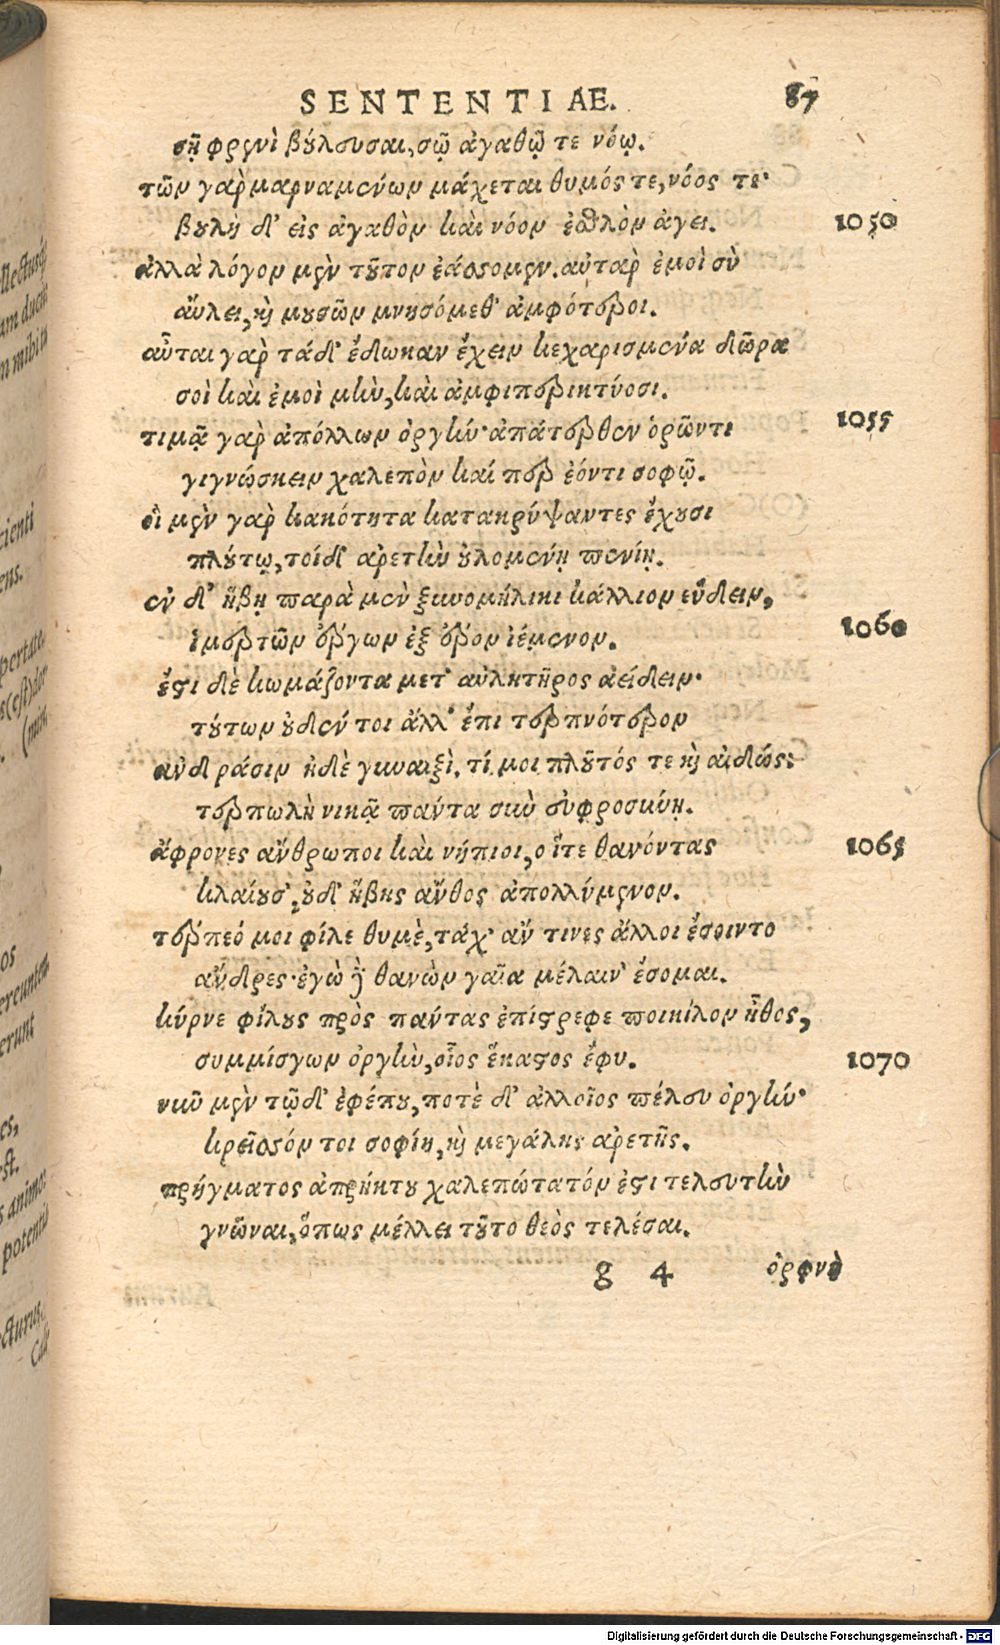 SENTENTIAE. 87
σῇ φρενὶ βούλευσαι, σῷ ἀγαθῷ τε νόῳ.
τῶν γὰρ μαρναμένων μάχεται θυμός τε, νόος τε·
βουλὴ δ' εἰς ἀγαθὸν καὶ νόον ἐσθλὸν ἄγει. 1050
ἀλλὰ λόγον μὲν τοῦτον ἐάσομεν. αὐτὰρ ἐμοὶ σὺ
αὔλει, καὶ μουσῶν μνησόμεθ' ἀμφότεροι.
αὗται γὰρ τάδ' ἔδωκαν ἔχειν κεχαρισμένα δῶρα
σοὶ καὶ ἐμοὶ μὴν, καὶ ἀμφιπερικτύοσι.
τιμᾷ γὰρ ἀπόλλων ὀργήν· ἀπάτερθεν ὁρῶντι 1055
γιγνώσκειν χαλεπὸν καί περ ἐόντι σοφῷ.
οἳ μὲν γὰρ κακότητα κατακρύψαντες ἔχουσι
πλούτῳ, τοίδ' ἀρετὴν οὐλομένῃ πενίῃ.
ἐν δ' ἥβῃ παρὰ μὲν ξυνομήλικι κάλλιον εὕδειν,
ἱμερτῶν ἔργων ἐξ ἔρον ἱέμενον. 1060
ἔστι δὲ κωμάζοντα μετ' αὐλητῆρος ἀείδειν·
τούτων οὐδέν τοι ἄλλ' ἔπι τερπνότερον
ἀνδράσιν ἠδὲ γυναιξὶ. τί μοι πλοῦτός τε καὶ αἰδώς;
τερπωλὴ νικᾷ πάντα σὺν εὐφροσύνῃ.
ἄφρονες ἄνθρωποι καὶ νήπιοι, οἵτε θανόντας 1065
κλαίουσ', οὐδ' ἥβης ἄνθος ἀπολλύμενον.
τέρπεό μοι φίλε θυμὲ, τάχ' ἄν τινες ἄλλοι ἔσοιντο
ἄνδρες· ἐγὼ δὲ θανὼν γαῖα μέλαιν' ἔσομαι.
κύρνε φίλους πρὸς πάντας ἐπίστρεφε ποικίλον ἦθος,
συμμίσγων ὀργὴν, οἷος ἕκαστος ἔφυ. 1070
νῦν μὲν τῷδ' ἐφέπου, ποτὲ δ' ἀλλοῖος πέλευ ὀργήν·
κρεῖσσόν τοι σοφίη, καὶ μεγάλης ἀρετῆς.
πρήγματος ἀπρήκτου χαλεπώτατόν ἐστι τελευτὴν
γνῶναι, ὅπως μέλλει τοῦτο θεὸς τελέσαι.
g 4 ὀρφνὴ
Digitalisierung gefördert durch die Deutsche Forschungsgemeinschaft - DFG